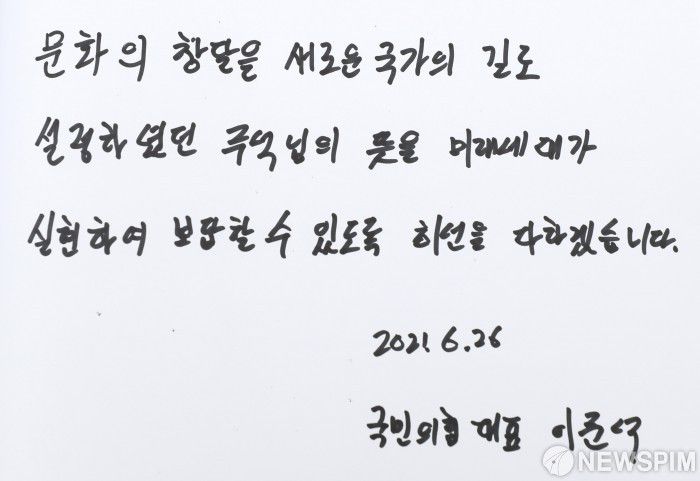 문화의 창달을 새로운 국가의 길로
설정하셨던 주석님의 뜻을 미래세대가
실현하여 보답할 수 있도록 최선을 다하겠습니다.
2021. 6. 26
국민의힘 대표 이준석
NEWSPIM